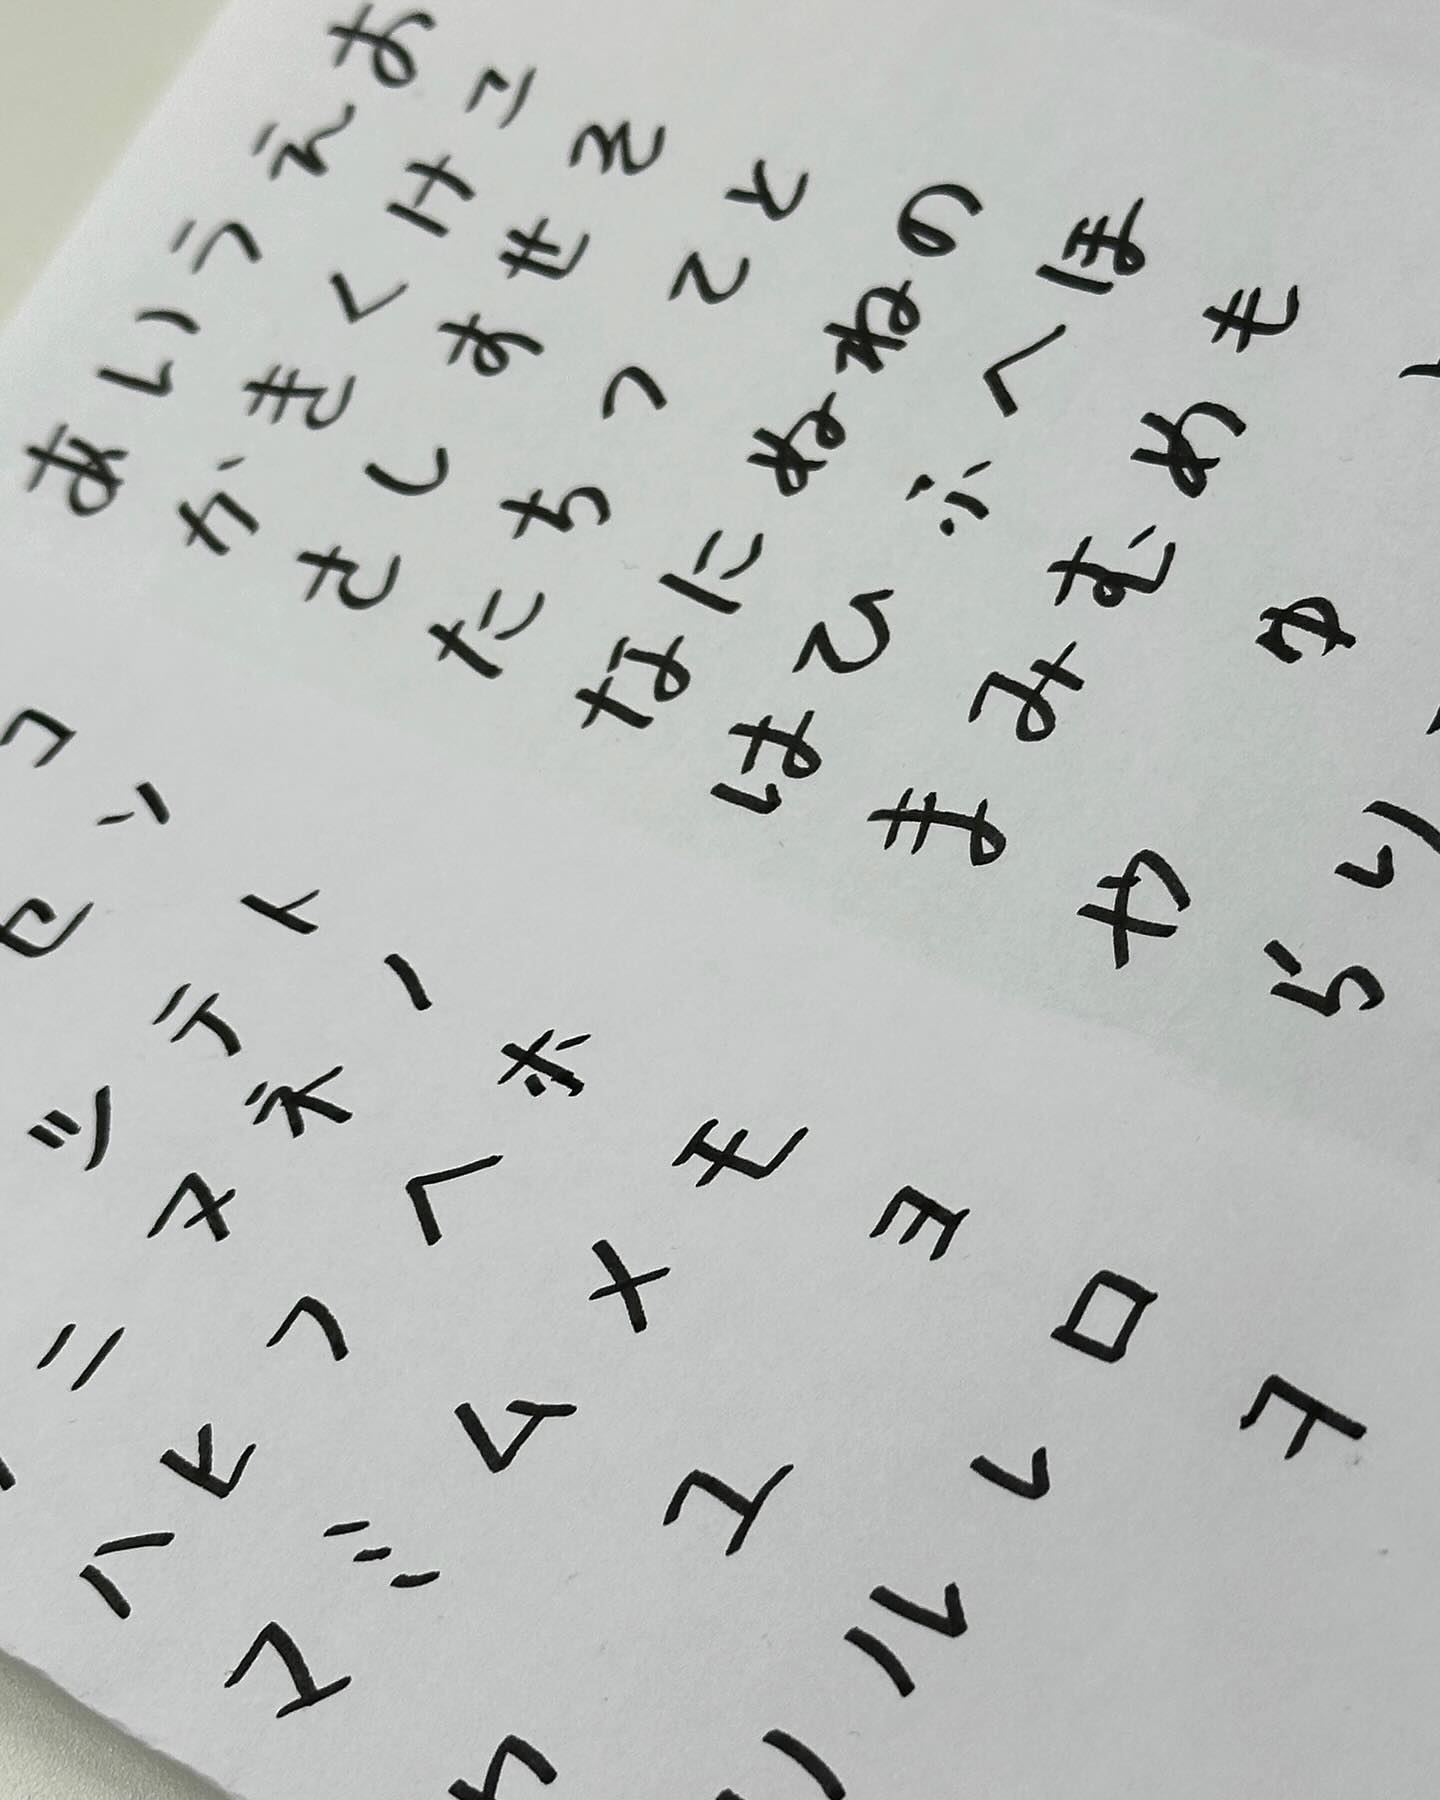 あいうえお
かきくけこ
さしすせそ
たちつてと
なにぬねの
はひふへほ
まみむめも
や ゆ
らり
コ
セソ
ツテト
ニヌネノ
ハヒフヘホ
マミムメモ
ヤ ユ ヨ
リルレロ
ヲ